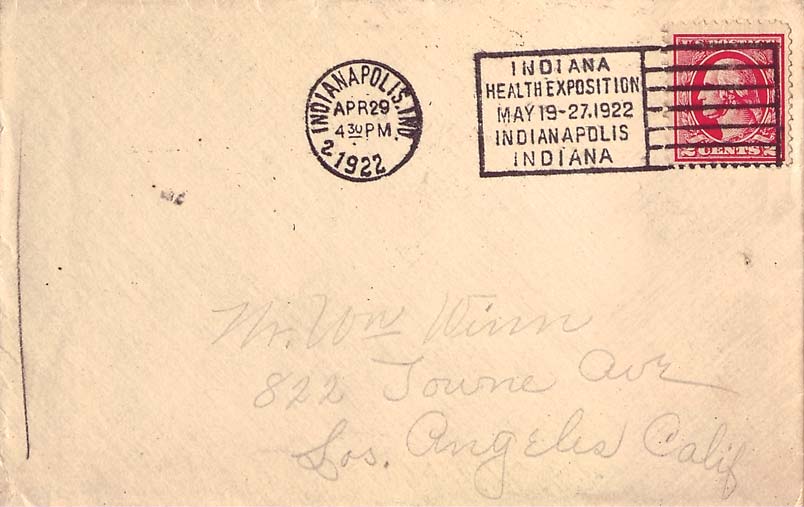 INDIANAPOLIS, IND
APR 29
4 30 PM
2 1922
INDIANA
HEALTH EXPOSITION
MAY 19-27. 1922
INDIANAPOLIS
INDIANA
2 CENTS 2
Mr. Wm Winn
822 Towne Ave
Los. Angeles Calif